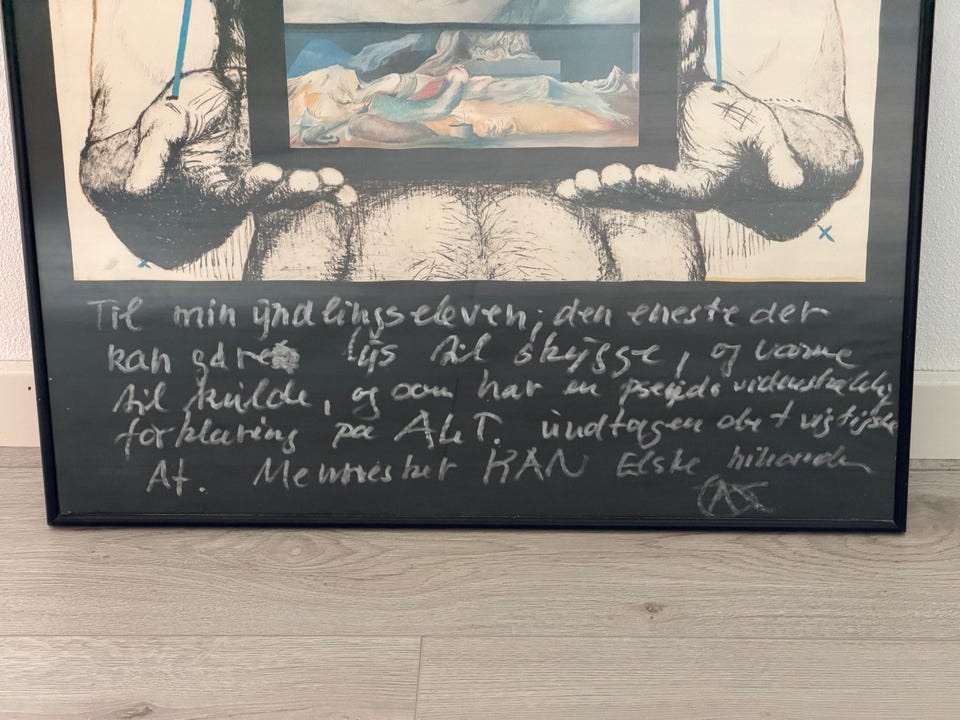 Til min yndlingseleven, den eneste der
kan gøre lys til skygge, og varme
til kulde, og som har en pseudovidenskabelig
forklaring på ALT. undtagen det vigtigste
At. Mennesket KAN Elske hinanden